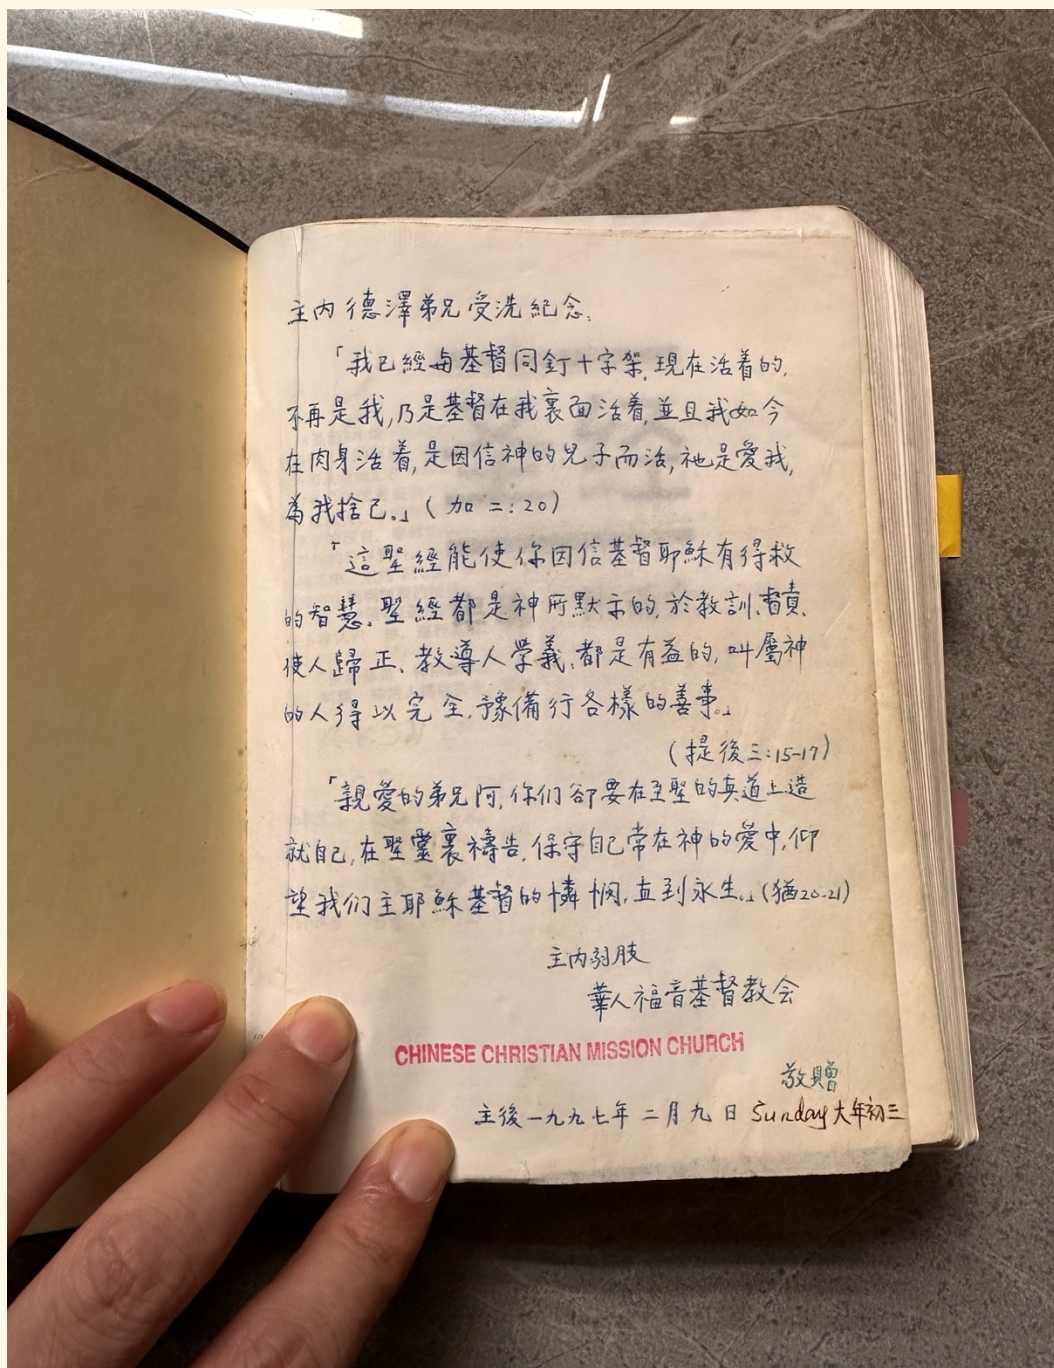 主内德澤弟兄受洗紀念:
「我已經与基督同釘十字架,現在活着的,
不再是我,乃是基督在我裏面活着,並且我如今
在肉身活着,是因信神的兒子而活,祂是愛我,
為我捨己。」(加二:20)
「這聖經能使你因信基督耶穌有得救
的智慧。聖經都是神所默示的,於教訓、督責、
使人歸正、教導人學義,都是有益的,叫屬神
的人得以完全,豫備行各樣的善事。」
(提後三:15-17)
「親愛的弟兄阿,你们卻要在至聖的真道上造
就自己,在聖靈裏禱告,保守自己常在神的愛中,仰
望我们主耶穌基督的憐憫,直到永生。」(猶20-21)
主内弱肢
華人福音基督教会
CHINESE CHRISTIAN MISSION CHURCH
敬贈
主後一九九七年二月九日 Sunday 大年初三